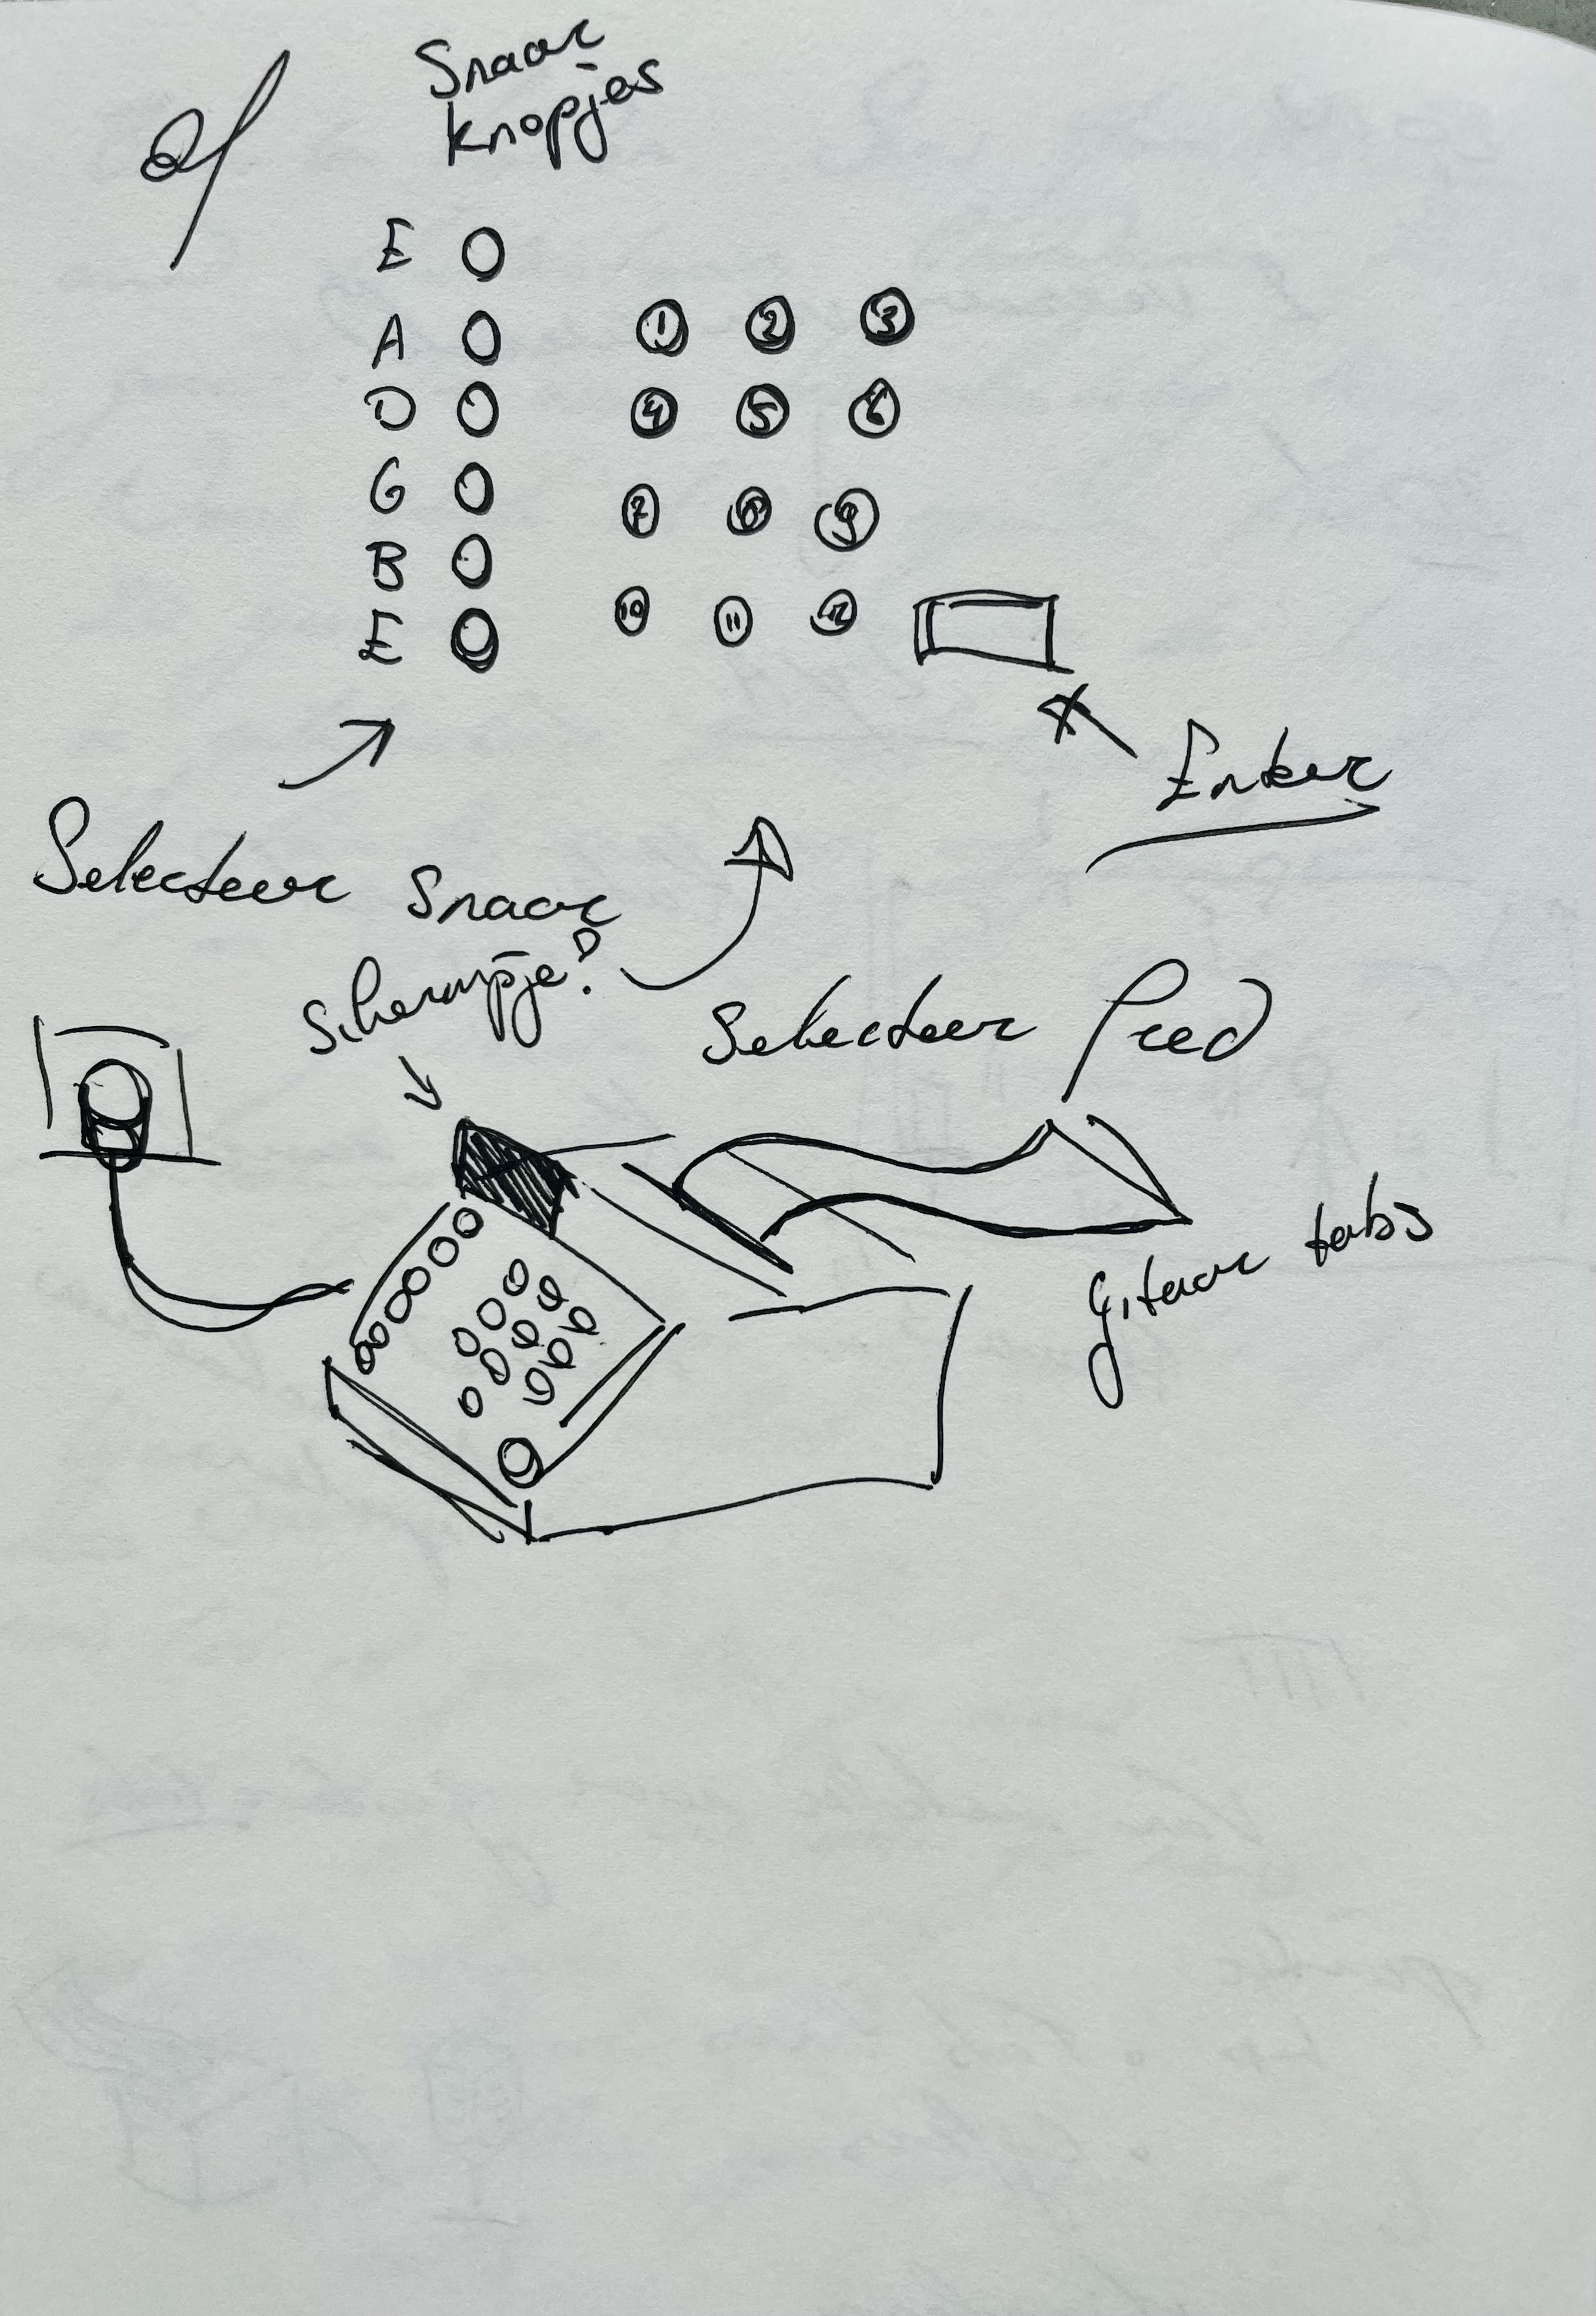 of
Snaar
knopjes
E
A
D
G
B
E
1 2 3
4 5 6
7 8 9
10 11 12
Enter
Selecteer Snaar
Schermpje?
Selecteer fred
gitaar tabs